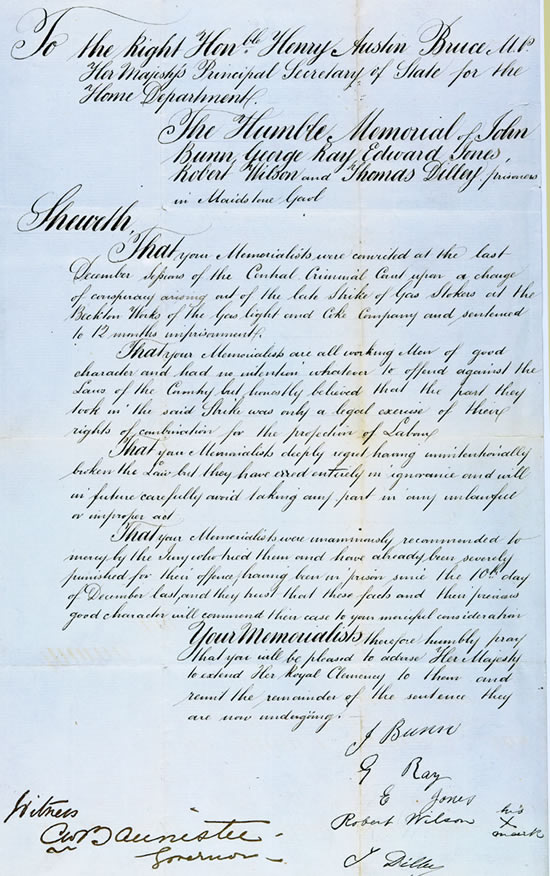 To the Right Honble Henry Austin Bruce M.P.
Her Majesty's Principal Secretary of State for the
Home Department.
The Humble Memorial of John
Bunn, George Ray, Edward Jones,
Robert Wilson and Thomas Dilley, prisoners
in Maidstone Gaol
Sheweth,
That your Memorialists were convicted at the last
December Sessions of the Central Criminal Court upon a charge
of conspiracy arising out of the late Strike of Gas Stokers at the
Beckton Works of the Gas light and Coke Company and sentenced
to 12 months imprisonment.
That your Memorialists are all working Men of good
character and had no intention whatever to offend against the
Laws of the Country but honestly believed that the part they
took in the said Strike was only a legal exercise of their
rights of combination for the protection of Labour
That your Memorialists deeply regret having unintentionally
broken the Law but they have erred entirely in ignorance and will
in future carefully avoid taking any part in any unlawful
or improper act
That your Memorialists were unanimously recommended to
mercy by the Jury who tried them and have already been severely
punished for their offence, having been in prison since the 10th day
of December last, and they trust that these facts and their previous
good character will commend their case to your merciful consideration
Your Memorialists therefore humbly pray
that you will be pleased to advise Her Majesty
to extend Her Royal Clemency to them and
remit the remainder of the sentence they
are now undergoing.
J Bunn
G Ray
E Jones
Robert Wilson his
X
mark
T Dilley
Witness
CW Bannister
Governor